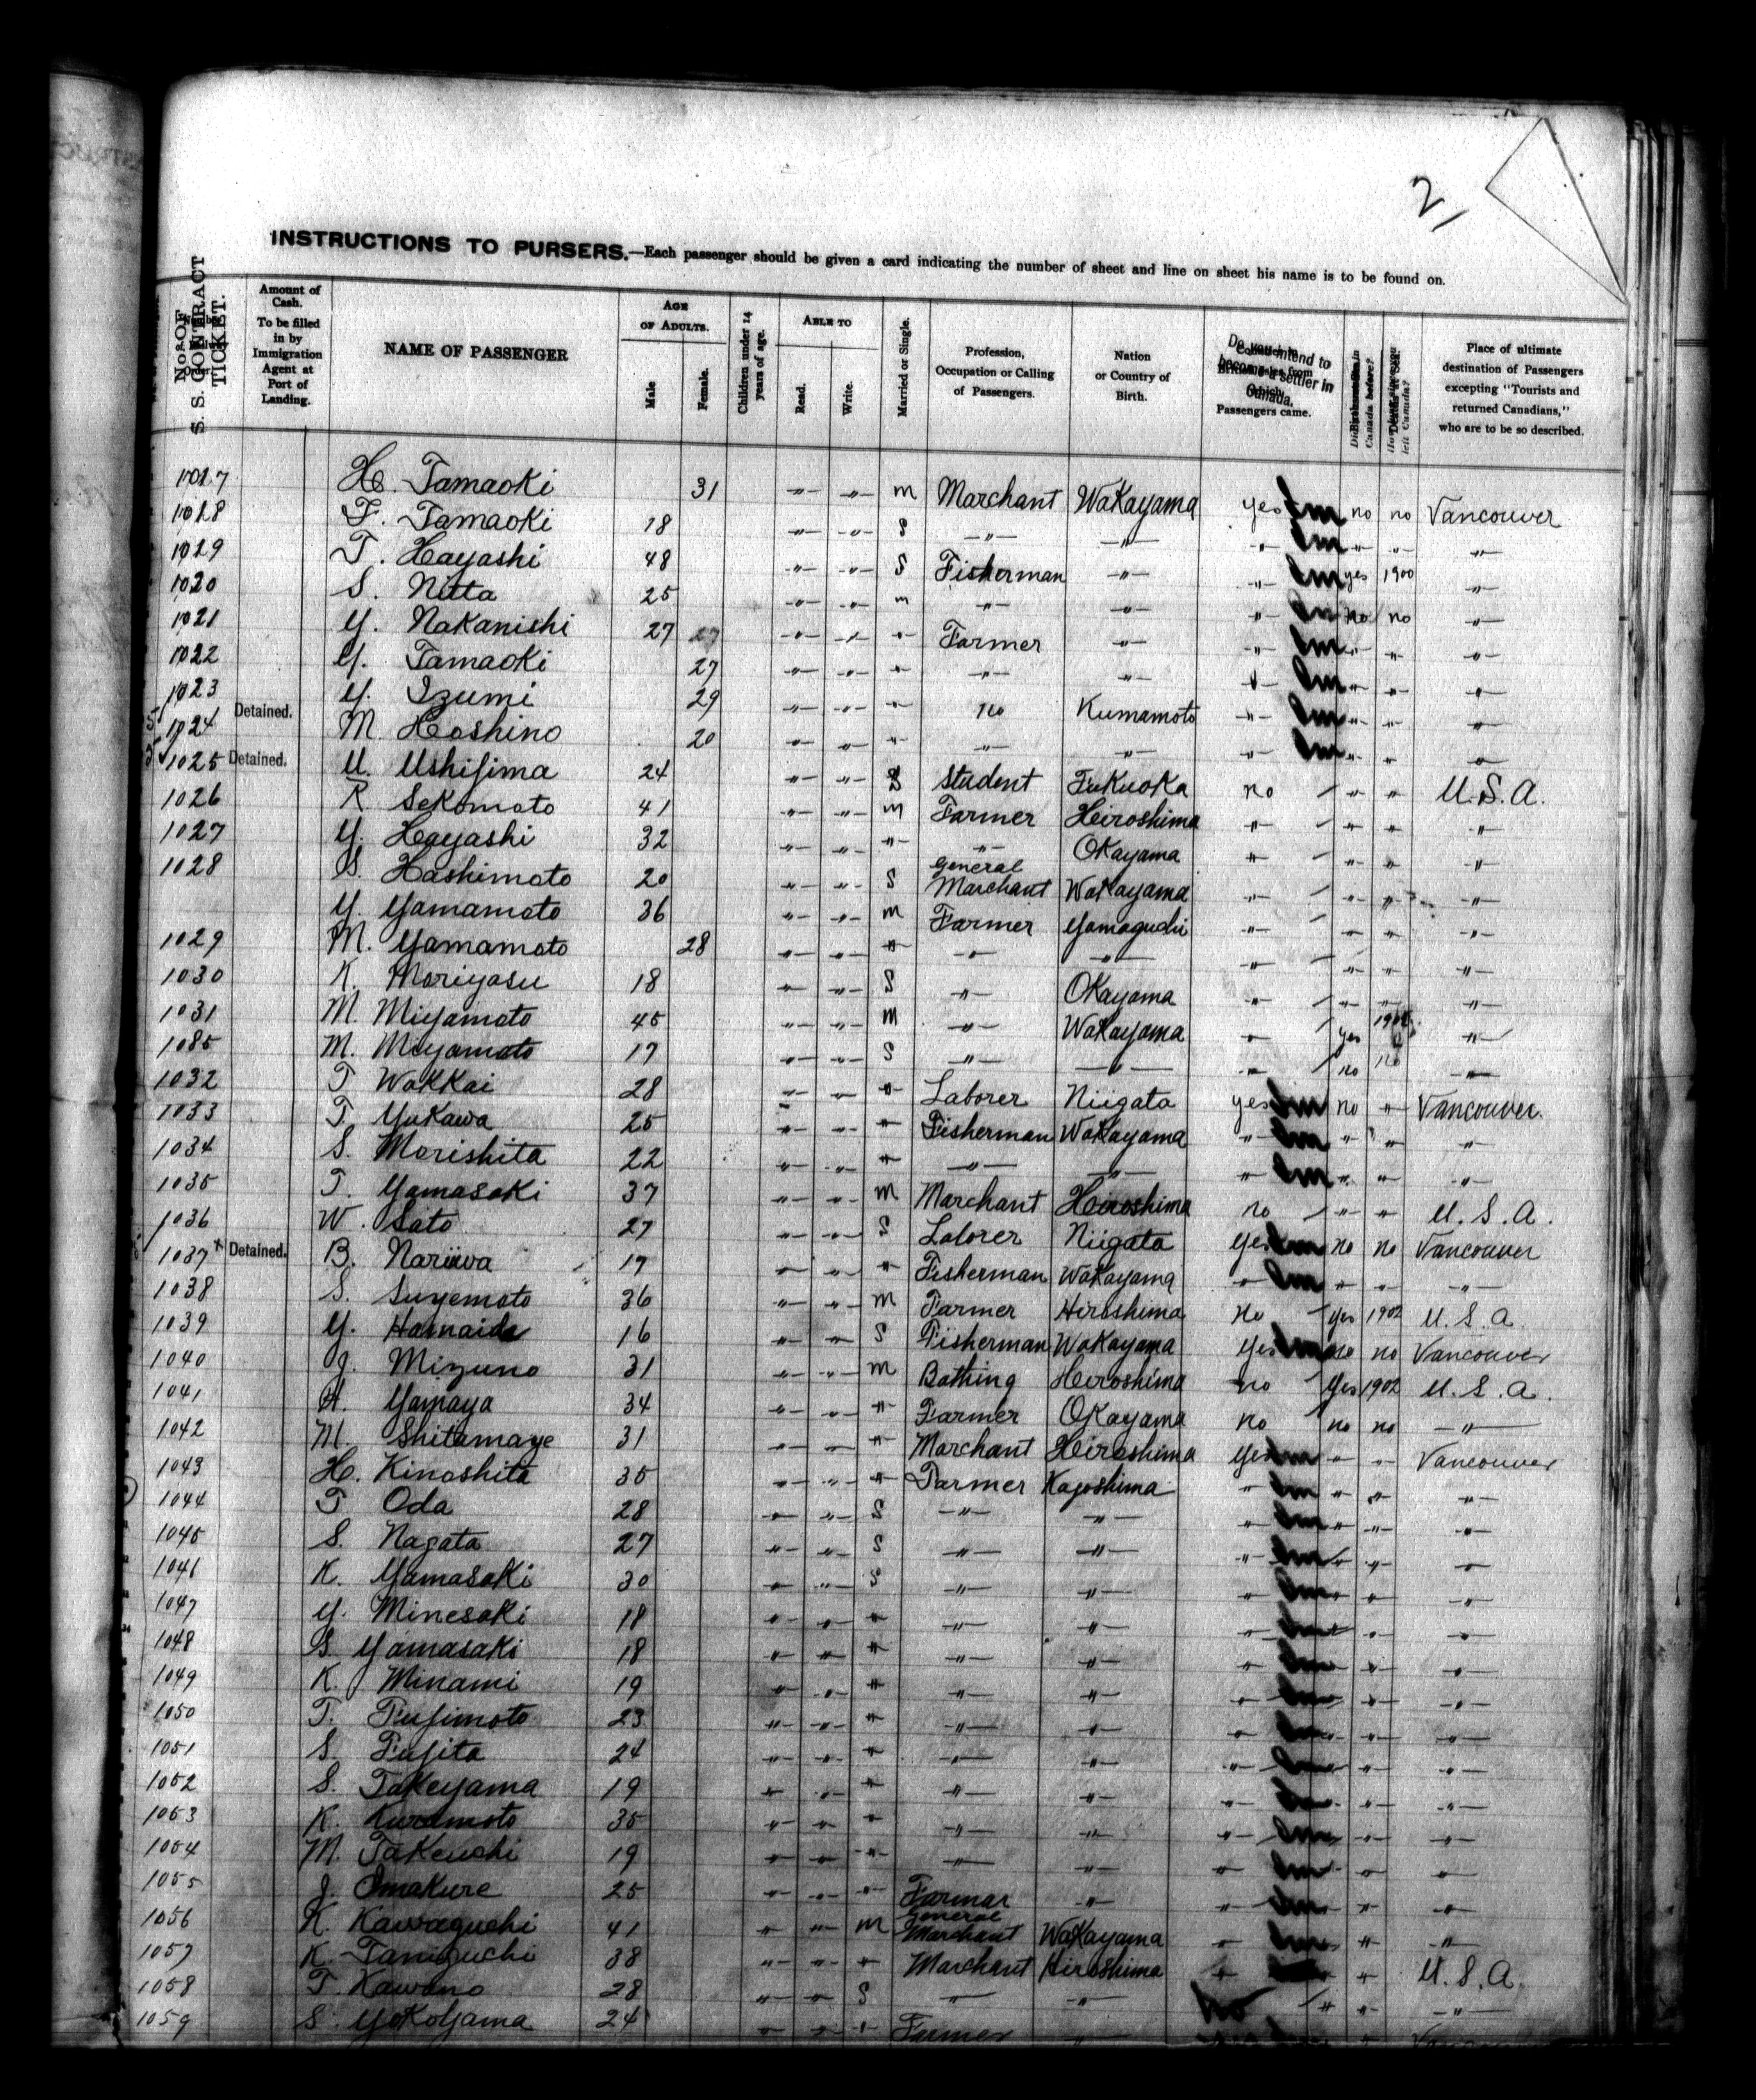 2
INSTRUCTIONS TO PURSERS.—Each passenger should be given a card indicating the number of sheet and line on sheet his name is to be found on.
No. OF S. S. CONTRACT TICKET. Amount of Cash. To be filled in by Immigration Agent at Port of Landing. NAME OF PASSENGER AGE OF ADULTS. Male Female. Children under 14 years of age. ABLE TO Read. Write. Married or Single. Profession, Occupation or Calling of Passengers. Nation or Country of Birth. Do you intend to become a settler in Canada. Passengers came. Canada before? left Canada? Place of ultimate destination of Passengers excepting "Tourists and returned Canadians," who are to be so described.
1017 H. Tamaoki 31 -"- -"- m Marchant Wakayama yes no no Vancouver
1018 F. Tamaoki 18 -"- -"- S -"- -"- -"- -"- -"- -"-
1019 T. Hayashi 48 -"- -"- S Fisherman -"- -"- yes 1900 -"-
1020 S. Nitta 25 -"- -"- m -"- -"- -"- no no -"-
1021 Y. Nakanishi 27 -"- -"- -"- Farmer -"- -"- -"- -"- -"-
1022 Y. Tamaoki 27 -"- -"- -"- -"- -"- -"- -"- -"- -"-
1023 Y. Izumi 29 -"- -"- -"- no Kumamoto -"- -"- -"- -"-
1024 Detained. M. Hoshino 20 -"- -"- -"- -"- -"- -"- -"- -"- -"-
1025 Detained. U. Ushijima 24 -"- -"- S Student Fukuoka no -"- -"- U.S.A.
1026 R. Sekomoto 41 -"- -"- m Farmer Heiroshima -"- -"- -"- -"-
1027 Y. Hayashi 32 -"- -"- -"- -"- Okayama -"- -"- -"- -"-
1028 S. Hashimoto 20 -"- -"- S General Marchant Wakayama -"- -"- -"- -"-
Y. Yamamoto 36 -"- -"- m Farmer Yamaguchi -"- -"- -"- -"-
1029 M. Yamamoto 28 -"- -"- -"- -"- -"- -"- -"- -"- -"-
1030 K. Moriyasu 18 -"- -"- S -"- Okayama -"- -"- -"- -"-
1031 M. Miyamoto 45 -"- -"- m -"- Wakayama -"- yes -"-
1085 M. Miyamoto 17 -"- -"- S -"- -"- -"- no no -"-
1032 T Wakkai 28 -"- -"- -"- Laborer Niigata yes no -"- Vancouver
1033 T Yukawa 25 -"- -"- -"- Fisherman Wakayama -"- -"- -"- -"-
1034 S. Morishita 22 -"- -"- -"- -"- -"- -"- -"- -"- -"-
1035 T. Yamasaki 37 -"- -"- m Marchant Heiroshima no -"- -"- U.S.A.
1036 W. Sato 27 -"- -"- S Laborer Niigata yes no no Vancouver
1037 Detained. B. Nariiwa 17 -"- -"- -"- Fisherman Wakayama -"- -"- -"- -"-
1038 S. Suyemoto 36 -"- -"- m Farmer Hiroshima no yes 1902 U.S.A.
1039 Y. Hamaide 16 -"- -"- S Fisherman Wakayama yes no no Vancouver
1040 J. Mizuno 31 -"- -"- m Bathing Heiroshima no yes 1902 U.S.A.
1041 Yamaya 34 -"- -"- -"- Farmer Okayama no no no -"-
1042 M. Shitamaye 31 -"- -"- -"- Marchant Heiroshima yes -"- -"- Vancouver
1043 H. Kinoshita 35 -"- -"- -"- Farmer Kagoshima -"- -"- -"- -"-
1044 T Oda 28 -"- -"- S -"- -"- -"- -"- -"- -"-
1045 S. Nagata 27 -"- -"- S -"- -"- -"- -"- -"- -"-
1046 K. Yamasaki 30 -"- -"- S -"- -"- -"- -"- -"- -"-
1047 Y. Minesaki 18 -"- -"- -"- -"- -"- -"- -"- -"-
1048 S. Yamasaki 18 -"- -"- -"- -"- -"- -"- -"- -"-
1049 K. Minami 19 -"- -"- -"- -"- -"- -"- -"- -"-
1050 T. Fujimoto 23 -"- -"- -"- -"- -"- -"- -"- -"-
1051 S. Fujita 24 -"- -"- -"- -"- -"- -"- -"- -"-
1052 S. Takeyama 19 -"- -"- -"- -"- -"- -"- -"- -"-
1053 K. Kuramoto 35 -"- -"- -"- -"- -"- -"- -"- -"-
1054 M. Takeuchi 19 -"- -"- -"- -"- -"- -"- -"- -"-
1055 J. Imakure 25 -"- -"- -"- Farmar -"- -"- -"- -"-
1056 K. Kawaguchi 41 -"- -"- m General Marchant Wakayama -"- -"- -"-
1057 K. Taniguchi 38 -"- -"- -"- Marchant Hiroshima -"- -"- U.S.A.
1058 T Kawano 28 -"- -"- S -"- -"- No -"- -"- -"-
1059 S. Yokoyama 24 -"- -"- -"- Farmer -"-